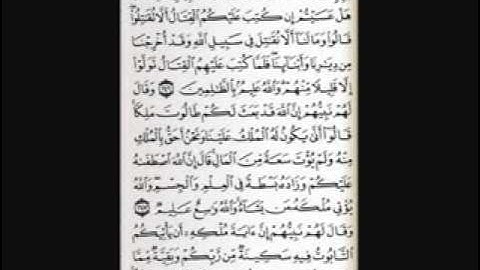 هَلْ عَسَيْتُمْ إِن كُتِبَ عَلَيْكُمُ الْقِتَالُ أَلَّا تُقَاتِلُوا
قَالُوا وَمَا لَنَا أَلَّا نُقَاتِلَ فِي سَبِيلِ اللَّهِ وَقَدْ أُخْرِجْنَا
مِن دِيَارِنَا وَأَبْنَائِنَا فَلَمَّا كُتِبَ عَلَيْهِمُ الْقِتَالُ تَوَلَّوْا
إِلَّا قَلِيلًا مِّنْهُمْ وَاللَّهُ عَلِيمٌ بِالظَّالِمِينَ ٢٤٦ وَقَالَ
لَهُمْ نَبِيُّهُمْ إِنَّ اللَّهَ قَدْ بَعَثَ لَكُمْ طَالُوتَ مَلِكًا
قَالُوا أَنَّىٰ يَكُونُ لَهُ الْمُلْكُ عَلَيْنَا وَنَحْنُ أَحَقُّ بِالْمُلْكِ
مِنْهُ وَلَمْ يُؤْتَ سَعَةً مِّنَ الْمَالِ قَالَ إِنَّ اللَّهَ اصْطَفَاهُ
عَلَيْكُمْ وَزَادَهُ بَسْطَةً فِي الْعِلْمِ وَالْجِسْمِ وَاللَّهُ
يُؤْتِي مُلْكَهُ مَن يَشَاءُ وَاللَّهُ وَاسِعٌ عَلِيمٌ ٢٤٧
وَقَالَ لَهُمْ نَبِيُّهُمْ إِنَّ آيَةَ مُلْكِهِ أَن يَأْتِيَكُمُ
التَّابُوتُ فِيهِ سَكِينَةٌ مِّن رَّبِّكُمْ وَبَقِيَّةٌ مِّمَّا